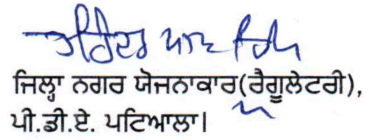 ਜਿਲ੍ਹਾ ਨਗਰ ਯੋਜਨਾਕਾਰ(ਰੈਗੂਲੇਟਰੀ),
ਪੀ.ਡੀ.ਏ. ਪਟਿਆਲਾ।